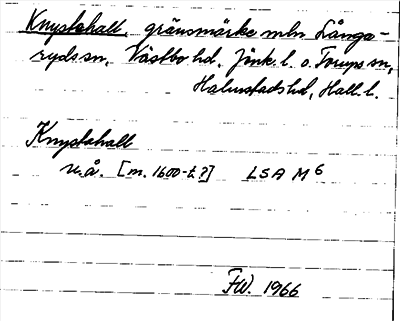 Knystahall, gränsmärke mln Långa-
ryds sn, Västbo hd, Jönk. l. o. Torups sn,
Halmstads hd, Hall. l.
Knystahall
u.å. [m. 1600-t.?] LSA M 6
FW. 1966